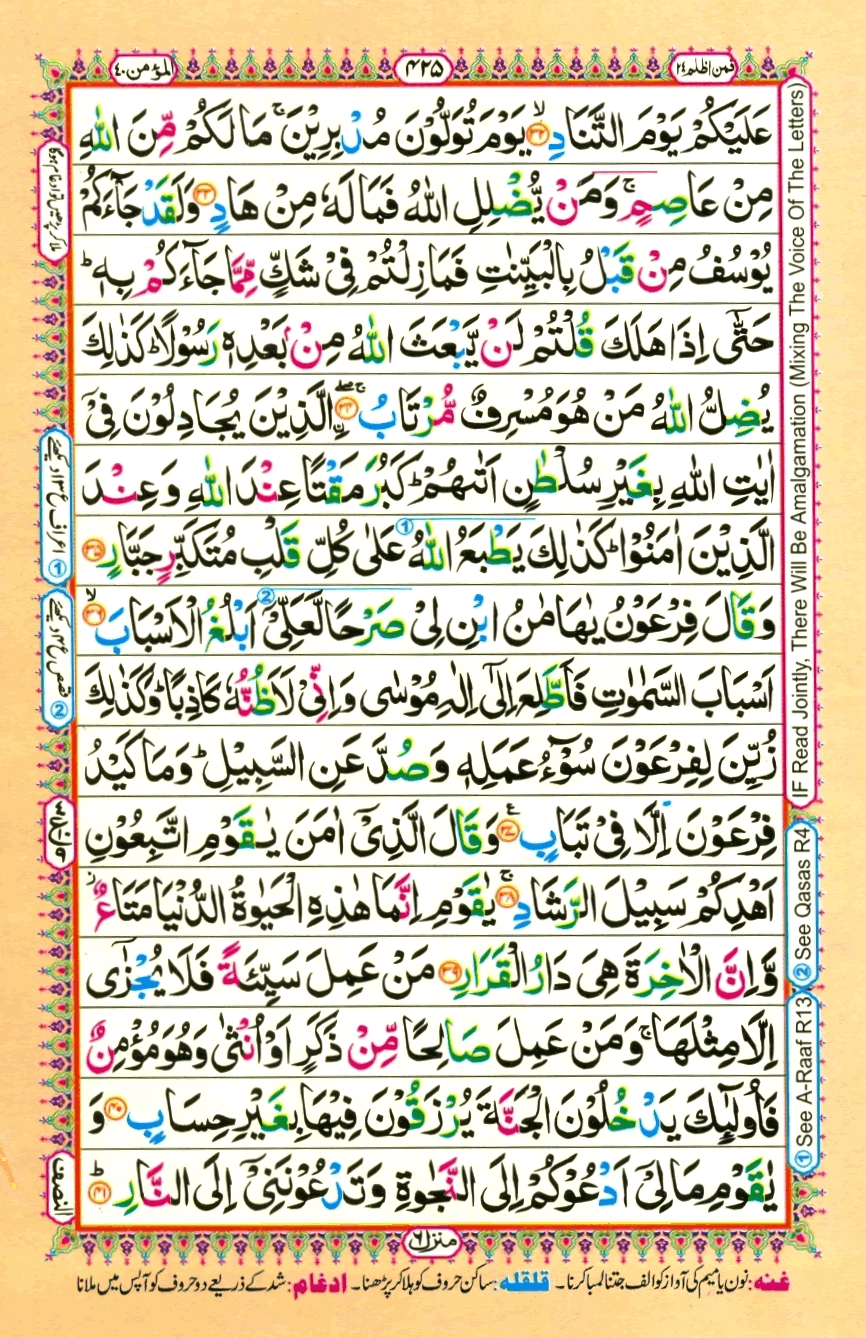 فمن اظلم ۲۴
۴۲۵
المؤمن ۴۰
عَلَيْكُمْ يَوْمَ التَّنَادِ ﴿۳۲﴾ۙ يَوْمَ تُوَلُّوْنَ مُدْبِرِيْنَ ۚ مَا لَكُمْ مِّنَ اللّٰهِ
مِنْ عَاصِمٍ ۚ وَمَنْ يُّضْلِلِ اللّٰهُ فَمَا لَهٗ مِنْ هَادٍ ﴿۳۳﴾ وَلَقَدْ جَآءَكُمْ
يُوْسُفُ مِنْ قَبْلُ بِالْبَيِّنٰتِ فَمَا زِلْتُمْ فِىْ شَكٍّ مِّمَّا جَآءَكُمْ بِهٖ ؕ
حَتّٰٓى اِذَا هَلَكَ قُلْتُمْ لَنْ يَّبْعَثَ اللّٰهُ مِنْۢ بَعْدِهٖ رَسُوْلًا ؕ كَذٰلِكَ
يُضِلُّ اللّٰهُ مَنْ هُوَ مُسْرِفٌ مُّرْتَابُ ﴿۳۴﴾ۚۖ ۨالَّذِيْنَ يُجَادِلُوْنَ فِىْٓ
اٰيٰتِ اللّٰهِ بِغَيْرِ سُلْطٰنٍ اَتٰىهُمْ ؕ كَبُرَ مَقْتًا عِنْدَ اللّٰهِ وَعِنْدَ
الَّذِيْنَ اٰمَنُوْا ؕ كَذٰلِكَ يَطْبَعُ اللّٰهُ ① عَلٰى كُلِّ قَلْبِ مُتَكَبِّرٍ جَبَّارٍ ﴿۳۵﴾
وَقَالَ فِرْعَوْنُ يٰهَامٰنُ ابْنِ لِىْ صَرْحًا ② لَّعَلِّىْٓ اَبْلُغُ الْاَسْبَابَ ﴿۳۶﴾ۙ
اَسْبَابَ السَّمٰوٰتِ فَاَطَّلِعَ اِلٰٓى اِلٰهِ مُوْسٰى وَاِنِّىْ لَاَظُنُّهٗ كَاذِبًا ؕ وَكَذٰلِكَ
زُيِّنَ لِفِرْعَوْنَ سُوْٓءُ عَمَلِهٖ وَصُدَّ عَنِ السَّبِيْلِ ؕ وَمَا كَيْدُ
فِرْعَوْنَ اِلَّا فِىْ تَبَابٍ ﴿۳۷﴾ وَقَالَ الَّذِىْٓ اٰمَنَ يٰقَوْمِ اتَّبِعُوْنِ
اَهْدِكُمْ سَبِيْلَ الرَّشَادِ ﴿۳۸﴾ۚ يٰقَوْمِ اِنَّمَا هٰذِهِ الْحَيٰوةُ الدُّنْيَا مَتَاعٌ
وَّاِنَّ الْاٰخِرَةَ هِىَ دَارُ الْقَرَارِ ﴿۳۹﴾ مَنْ عَمِلَ سَيِّئَةً فَلَا يُجْزٰٓى
اِلَّا مِثْلَهَا ۚ وَمَنْ عَمِلَ صَالِحًا مِّنْ ذَكَرٍ اَوْ اُنْثٰى وَهُوَ مُؤْمِنٌ
فَاُولٰٓئِكَ يَدْخُلُوْنَ الْجَنَّةَ يُرْزَقُوْنَ فِيْهَا بِغَيْرِ حِسَابٍ ﴿۴۰﴾ وَ
يٰقَوْمِ مَا لِىْٓ اَدْعُوْكُمْ اِلَى النَّجٰوةِ وَتَدْعُوْنَنِىْٓ اِلَى النَّارِ ﴿۴۱﴾ؕ
IF Read Jointly, There Will Be Amalgamation (Mixing The Voice Of The Letters)
① See A-Raaf R13 ② See Qasas R4
① اعراف ع ۱۳ دیکھئے
② قصص ع ۴ دیکھئے
النصف
منزل ۶
غنه: نون یا میم کی آواز کو الف جتنا لمبا کرنا۔ قلقله: ساکن حروف کو ہلا کر پڑھنا۔ ادغام: شد کے ذریعے دو حروف کو آپس میں ملانا